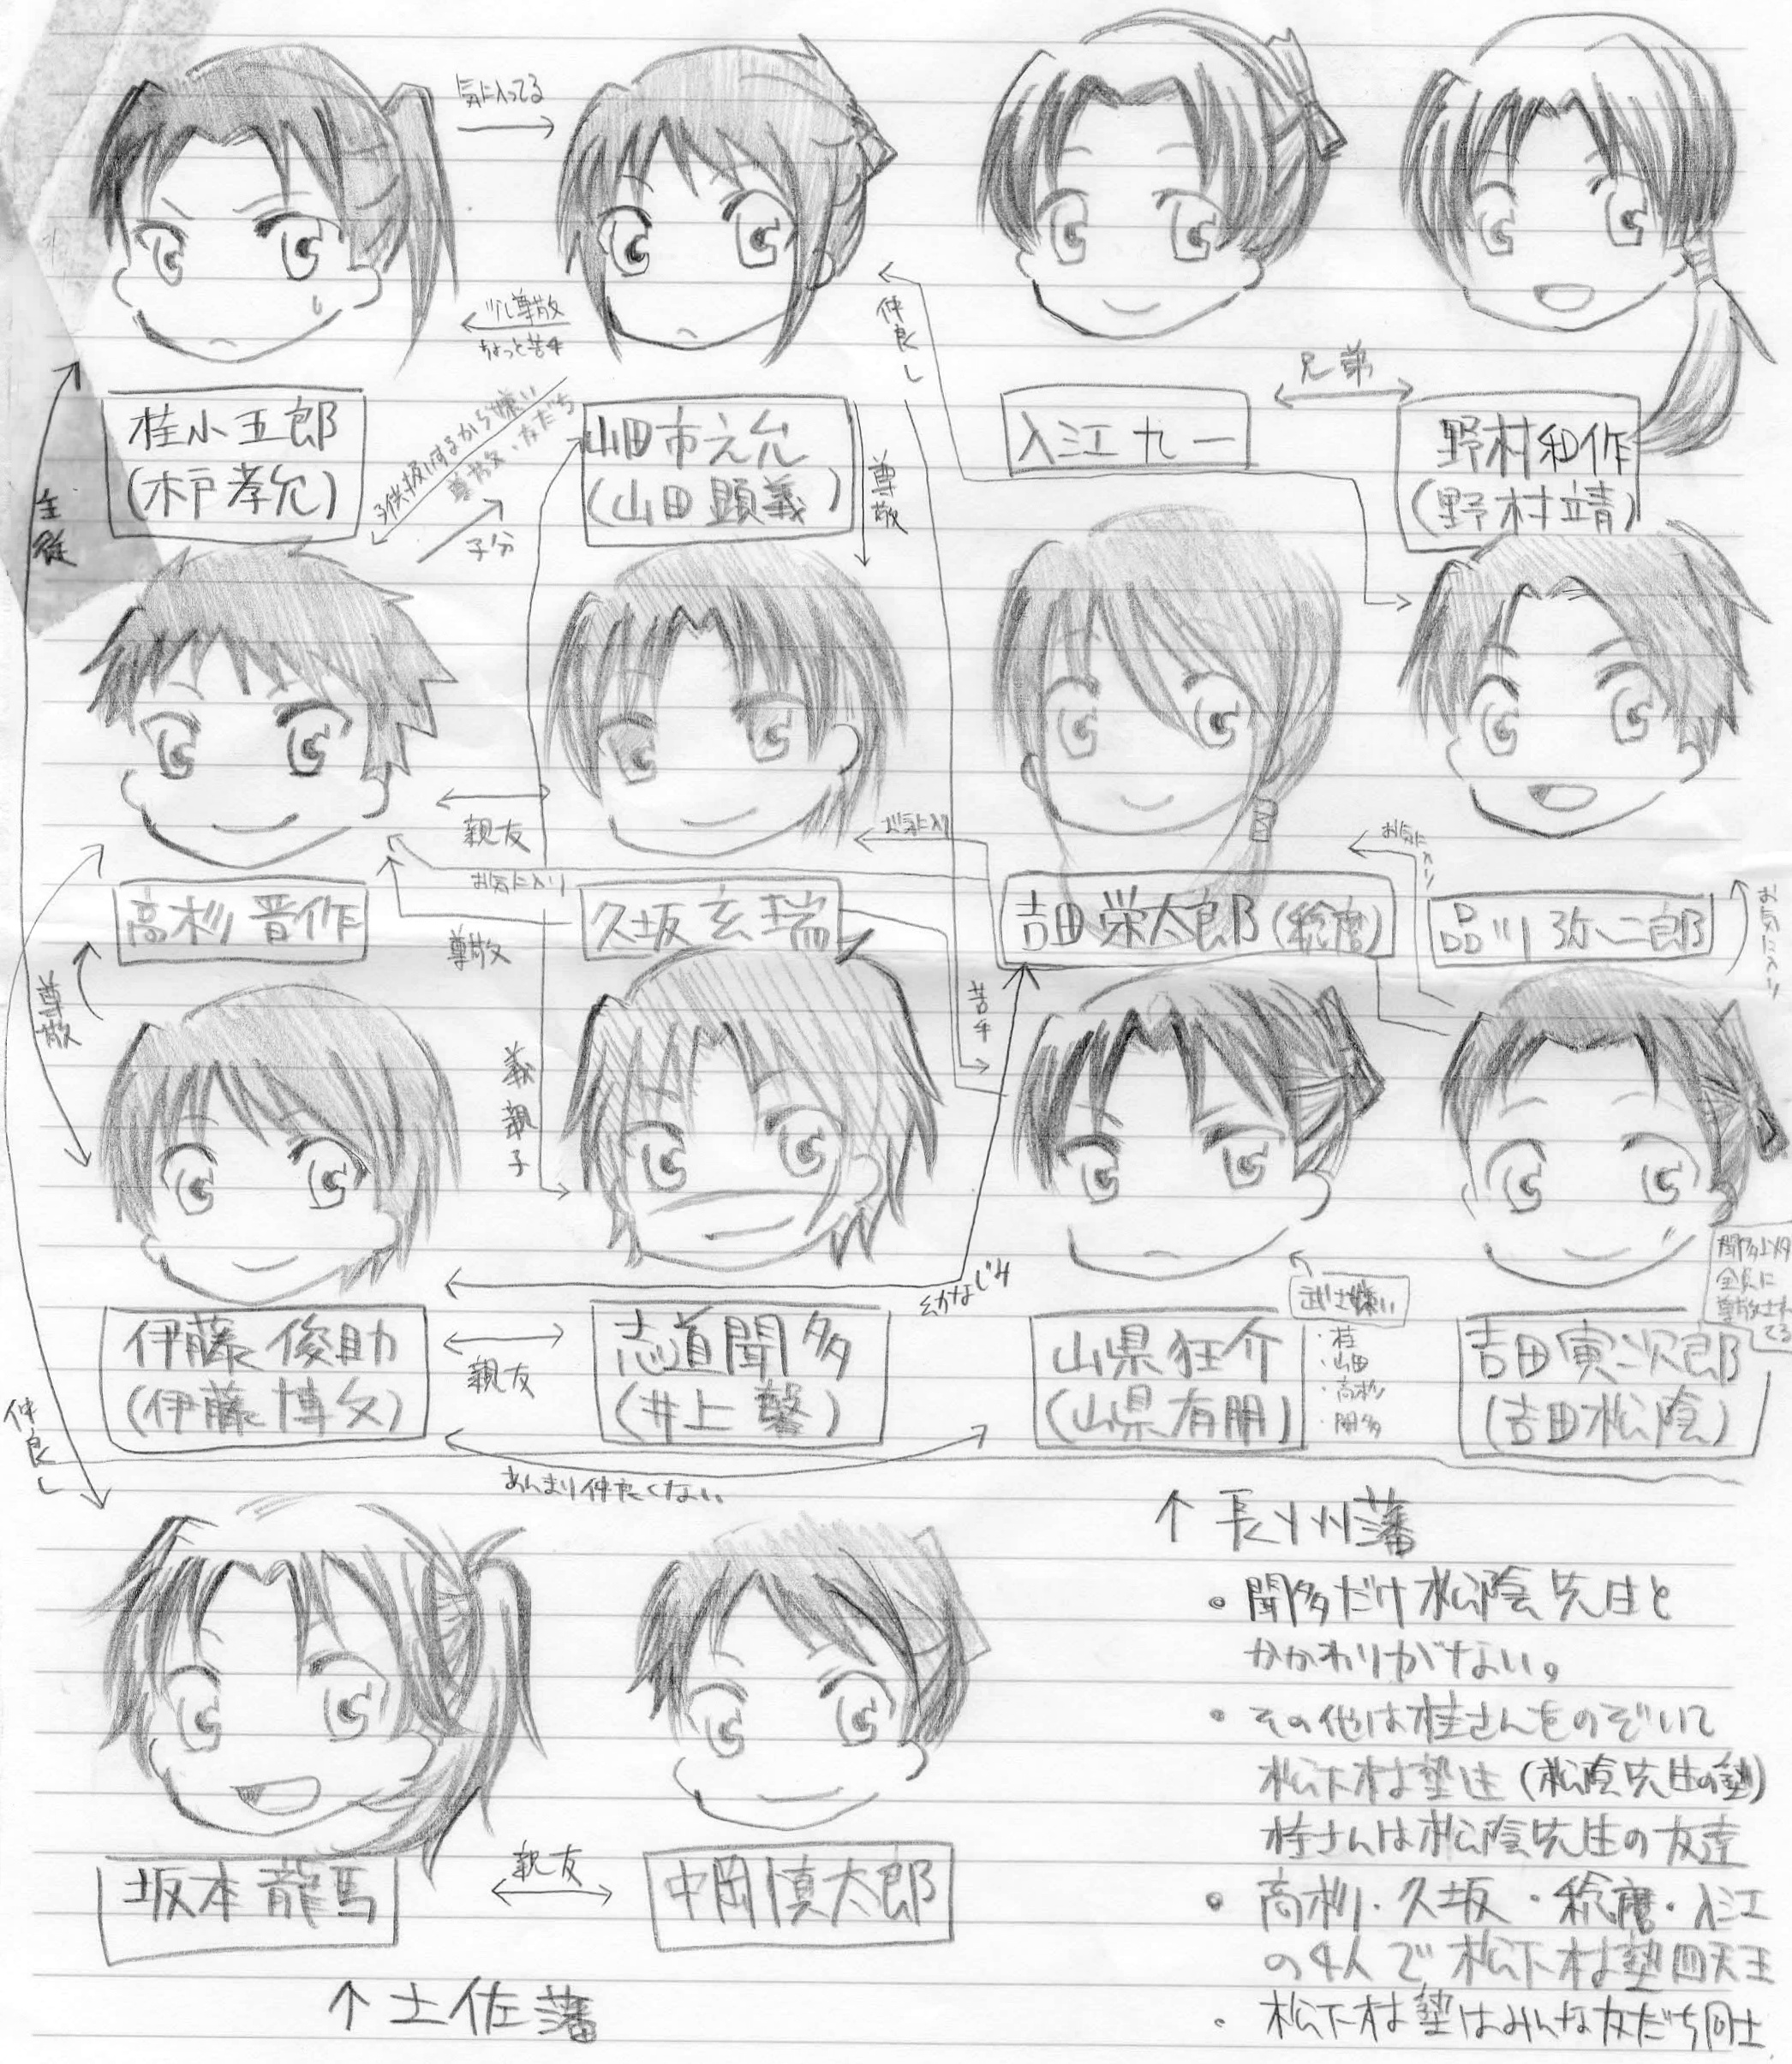 気に入ってる
少し尊敬
ちょっと苦手
仲良し
兄弟
桂小五郎
(木戸孝允)
山田市之允
(山田顕義)
入江九一
野村和作
(野村靖)
子供扱いするから嫌い
尊敬、友だち
子分
尊敬
主従
親友
お気に入り
お気に入り
お気に入り
お気に入り
高杉晋作
久坂玄瑞
吉田栄太郎(稔麿)
品川弥二郎
尊敬
尊敬
苦手
義親子
幼なじみ
武士嫌い
・桂
・山田
・高杉
・聞多
聞多以外
全員に
尊敬され
てる
伊藤俊助
(伊藤博文)
親友
志道聞多
(井上馨)
山県狂介
(山県有朋)
吉田寅次郎
(吉田松陰)
仲良し
あんまり仲良くない。
↑長州藩
・聞多だけ松陰先生と
かかわりがない。
・その他は桂さんをのぞいて
松下村塾生(松陰先生の塾)
桂さんは松陰先生の友達
・高杉・久坂・稔麿・入江
の4人で松下村塾四天王
・松下村塾はみんな友だち同士
坂本龍馬
親友
中岡慎太郎
↑土佐藩